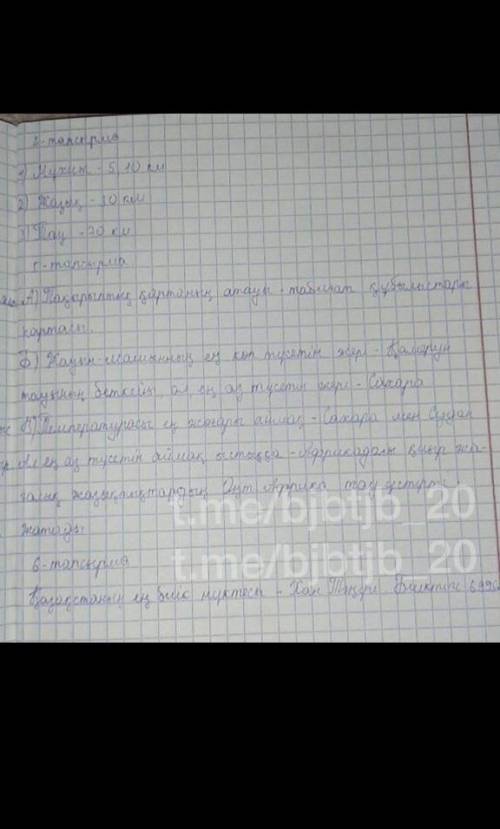 тапсырма
1) Мұхит - 5,10 км
2) Жазық - 30 км
3) Тау - 70 км
тапсырма
А) Тақырыптық картаның атауы - табиғат құбылыстары
картасы.
Б) Жауын-шашынның ең көп түсетін жері - Камерун
тауының беткейі, ал ең аз түсетін жері - Сахара
В) Температурасы ең жоғары аймақ - Сахара мен Судан
ең аз түсетін аймақ ыстыққа - Африкадағы қиыр
жазықтықтардың Оңт Африка тау үстірті
жатады
t.me/bjbtjb_20
6-тапсырма
t.me/bjbtjb_20
Қазақстанның ең биік нүктесі - Хан Тәңірі. Биіктігі 699